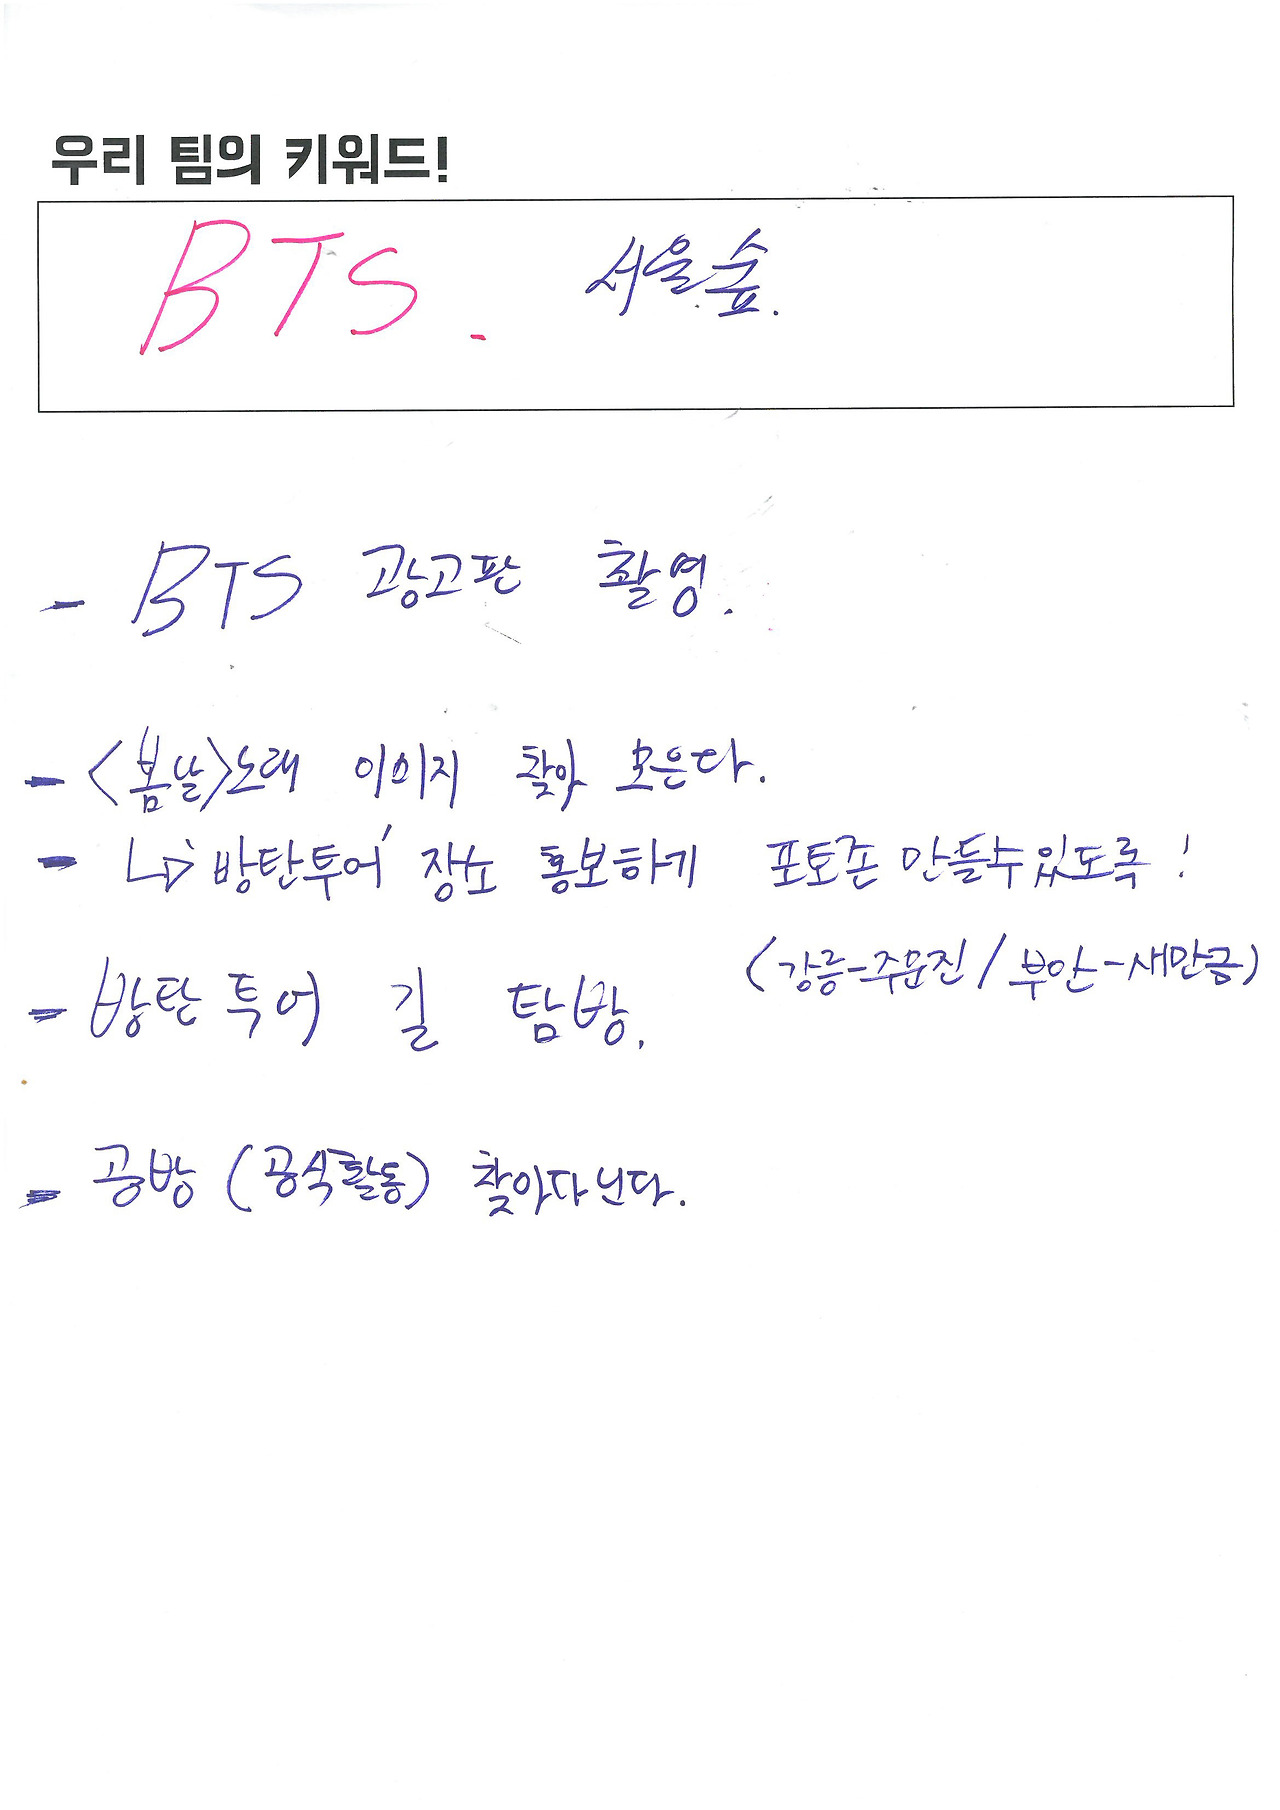 우리 팀의 키워드!
BTS. 서울숲.
- BTS 광고판 촬영.
- <봄날>노래 이미지 찾아 모은다.
- ↳ 방탄투어' 장소 통보하기 포토존 만들수있도록!
(강릉-주문진 / 부안-새만금)
- 방탄 투어 길 탐방.
- 공방 (공식활동) 찾아다닌다.